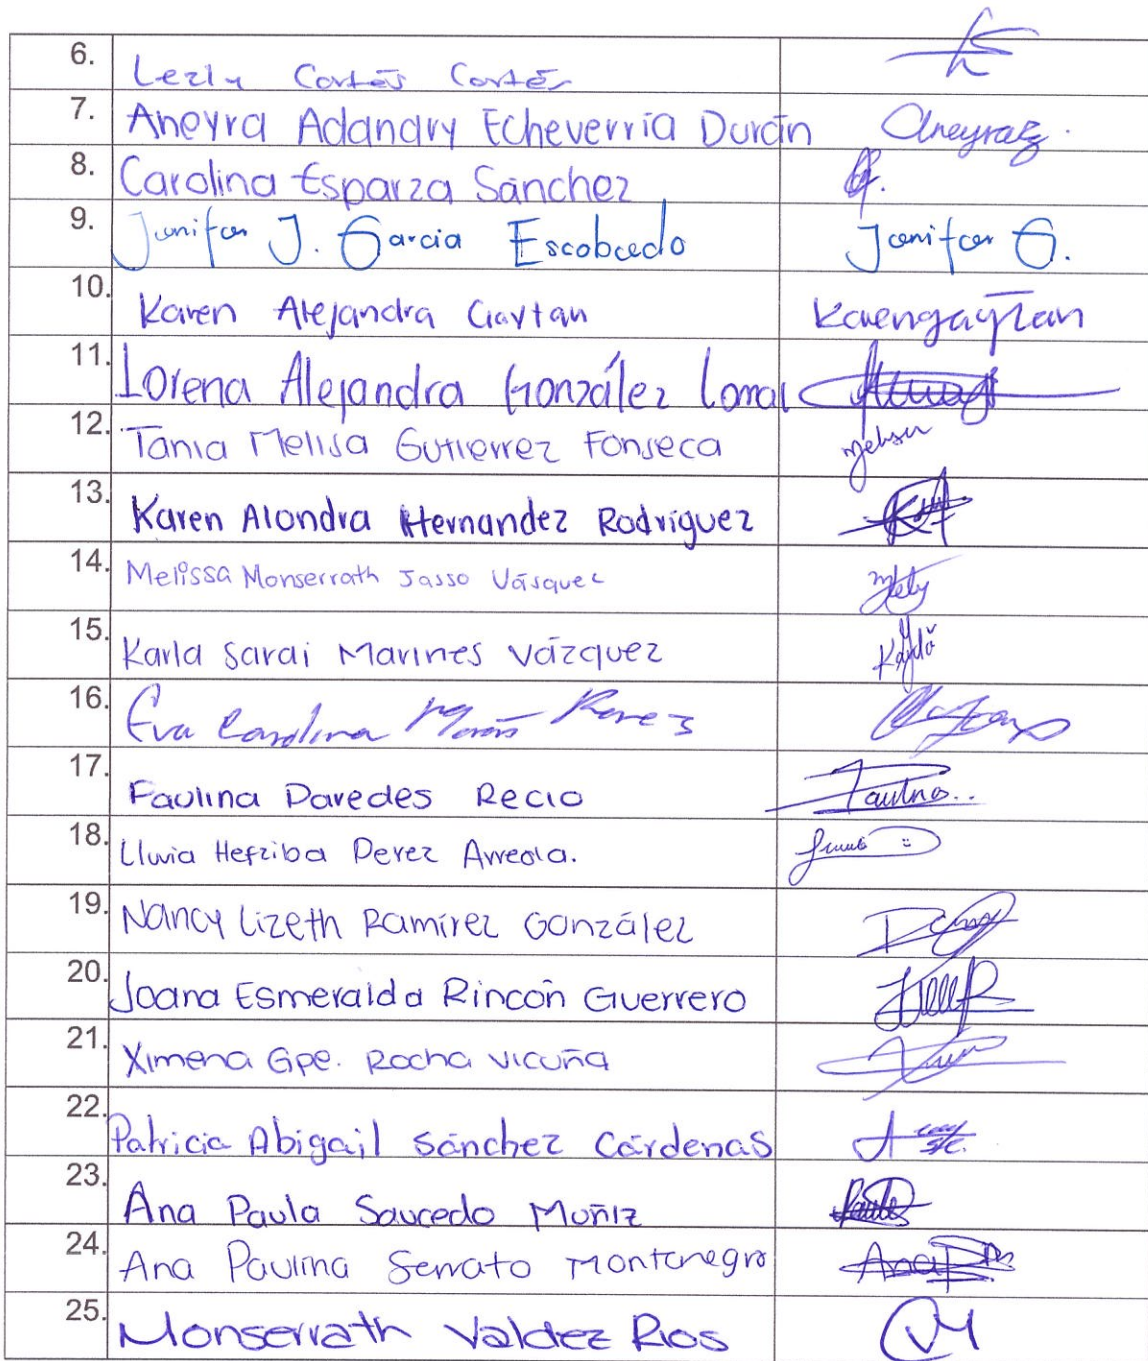 6. Lezly Cortés Cortés
7. Aneyra Adanary Echeverría Durán Aneyraez.
8. Carolina Esparza Sánchez
9. Jenifer J. Garcia Escobedo Jenifer G.
10. Karen Alejandra Gaytan Karengaytan
11. Lorena Alejandra González Lomal
12. Tania Melisa Gutierrez Fonseca Melisa
13. Karen Alondra Hernandez Rodriguez
14. Melissa Monserrath Jasso Vásquez
15. Karla Sarai Marines Vázquez
16. Eva Carolina Morán Perez
17. Paulina Paredes Recio Paulina..
18. Lluvia Hefziba Perez Arreola.
19. Nancy Lizeth Ramírez González
20. Joana Esmeralda Rincón Guerrero
21. Ximena Gpe. Rocha Vicuña
22. Patricia Abigail Sánchez Cárdenas
23. Ana Paula Saucedo Muñiz
24. Ana Paulina Serrato Montenegro
25. Monserrath Valdez Rios VM